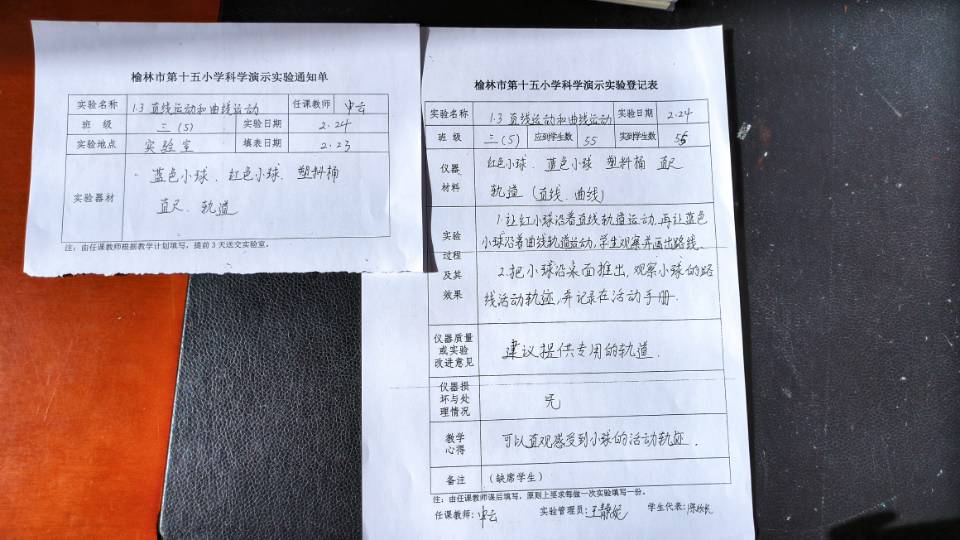 榆林市第十五小学科学演示实验通知单
实验名称 1.3 直线运动和曲线运动 任课教师 申云
班 级 三(5) 实验日期 2.24
实验地点 实验室 填表日期 2.23
实验器材
蓝色小球、红色小球、塑料桶
直尺、轨道
注：由任课教师根据教学计划填写，提前 3 天送交实验室。
榆林市第十五小学科学演示实验登记表
实验名称 1.3 直线运动和曲线运动 实验日期 2.24
班 级 三(5) 应到学生数 55 实到学生数 55
仪器
材料
红色小球、蓝色小球 塑料桶 直尺
轨道(直线、曲线)
实验
过程
及其
效果
1.让红小球沿着直线轨道运动,再让蓝色
小球沿着曲线轨道运动,学生观察并画出路线.
2.把小球沿桌面推出,观察小球的路
线活动轨迹,并记录在活动手册.
仪器质量
或实验
改进意见
建议提供专用的轨道.
仪器损
坏与处
理情况
无
教学
心得
可以直观感受到小球的活动轨迹.
备注 (缺席学生)
注：由任课教师课后填写，原则上要求每做一次实验填写一份。
任课教师:申云 实验管理员:王静妮 学生代表: